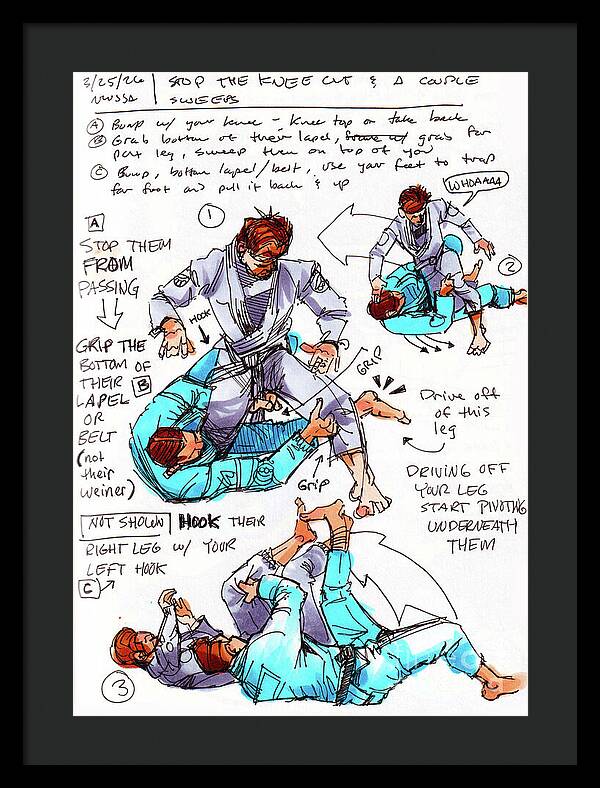 3/25/26 | STOP THE KNEE CUT & A COUPLE
NWSSA SWEEPS
Ⓐ Bump w/ your knee - knee top or take back
Ⓑ Grab bottom of their lapel, grab far
pant leg, sweep them on top of you
Ⓒ Bump, bottom lapel/belt, use your feet to trap
far foot and pull it back & up
A
STOP THEM
FROM
PASSING
GRIP THE
BOTTOM OF
THEIR B
LAPEL
OR
BELT
(not
their
weiner)
1
HOOK
GRIP
GRIP
WHOAAAA
2
Drive off
of this
leg
DRIVING OFF
YOUR LEG
START PIVOTING
UNDERNEATH
THEM
NOT SHOWN HOOK THEIR
RIGHT LEG w/ YOUR
LEFT HOOK
C
3